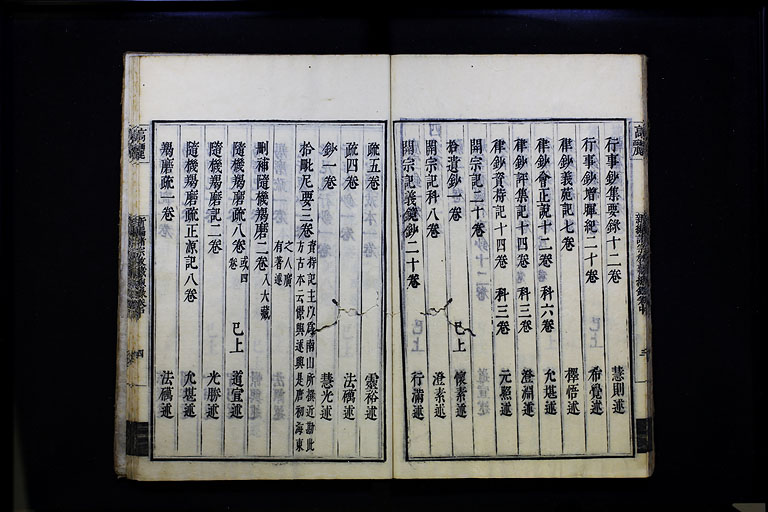 行事鈔集要錄十二卷 慧則述
行事鈔增暉紀二十卷 希覺述
律鈔義苑記七卷 擇悟述
律鈔會正說十二卷 科六卷 允堪述
律鈔評集記十四卷 科三卷 澄淵述
律鈔資持記十四卷 科三卷 元照述
開宗記二十卷
拾遺鈔一卷 已上 懷素述
開宗記科八卷 澄素述
開宗記義鏡鈔二十卷 行滿述
疏五卷 靈裕述
疏四卷 法礪述
鈔一卷 慧光述
拾毗尼要三卷 資持記主以為南山所撰近勘此方古本云憬興述興是唐初海東之人廣有著述
刪補隨機羯磨二卷 入大藏
隨機羯磨疏八卷 或四卷 已上 道宣述
隨機羯磨記二卷 光勝述
隨機羯磨疏正源記八卷 允堪述
羯磨疏一卷 法礪述